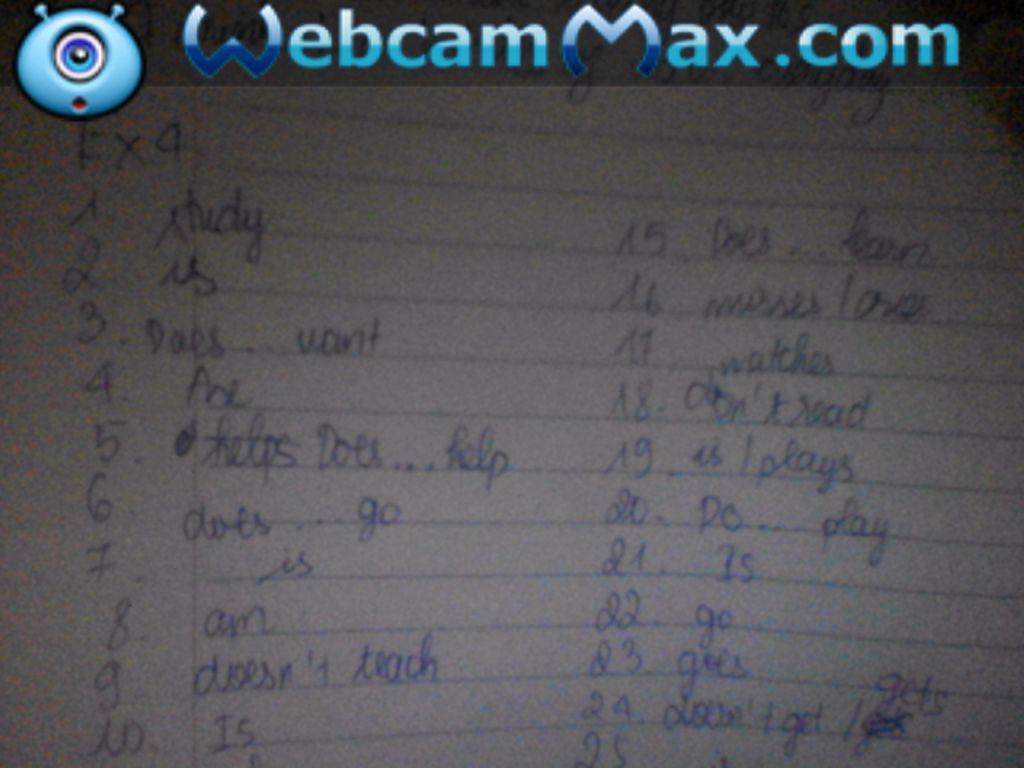 WebcamMax.com
Ex 4
1 study
2 is
3. Does... want
4. Are
5. helps Does... help
6. does... go
7. is
8. am
9. doesn't teach
10. Is
15 Does... learn
16 misses /
17 watches
18. don't read
19 is / plays
20. Do... play
21. Is
22 go
23. goes
24 doesn't get / gets
25